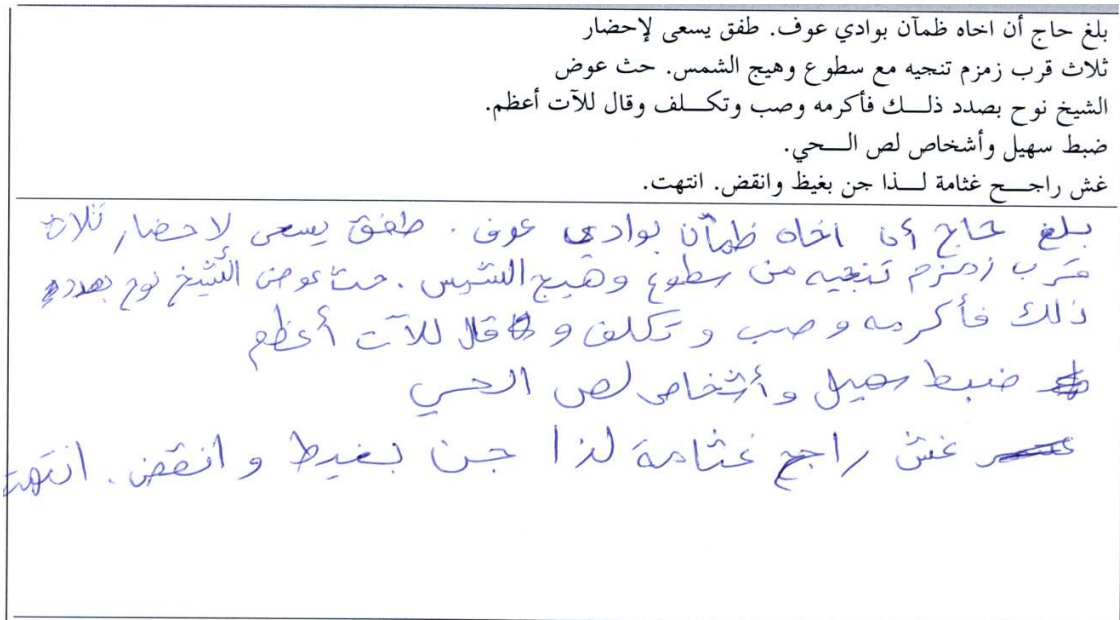 بلغ حاج أن اخاه ظمآن بوادي عوف. طفق يسعى لإحضار
ثلاث قرب زمزم تنجيه مع سطوع وهيج الشمس. حث عوض
الشيخ نوح بصدد ذلك فأكرمه وصب وتكلف وقال للآت أعظم.
ضبط سهيل وأشخاص لص الحي.
غش راجح غثامة لذا جن بغيظ وانقض. انتهت.
بلغ حاج أن اخاه ظمآن بوادي عوف . طفق يسعى لاحضار ثلاث
قرب زمزم تنجيه من سطوع وهيج الشمس . حث عوض الشيخ نوح بصدد
ذلك فأكرمه وصب وتكلف و قال للآت أعظم
ضبط سهيل وأشخاص لص الحي
غش راجح غثامة لذا جن بغيط وانقض . انتهت